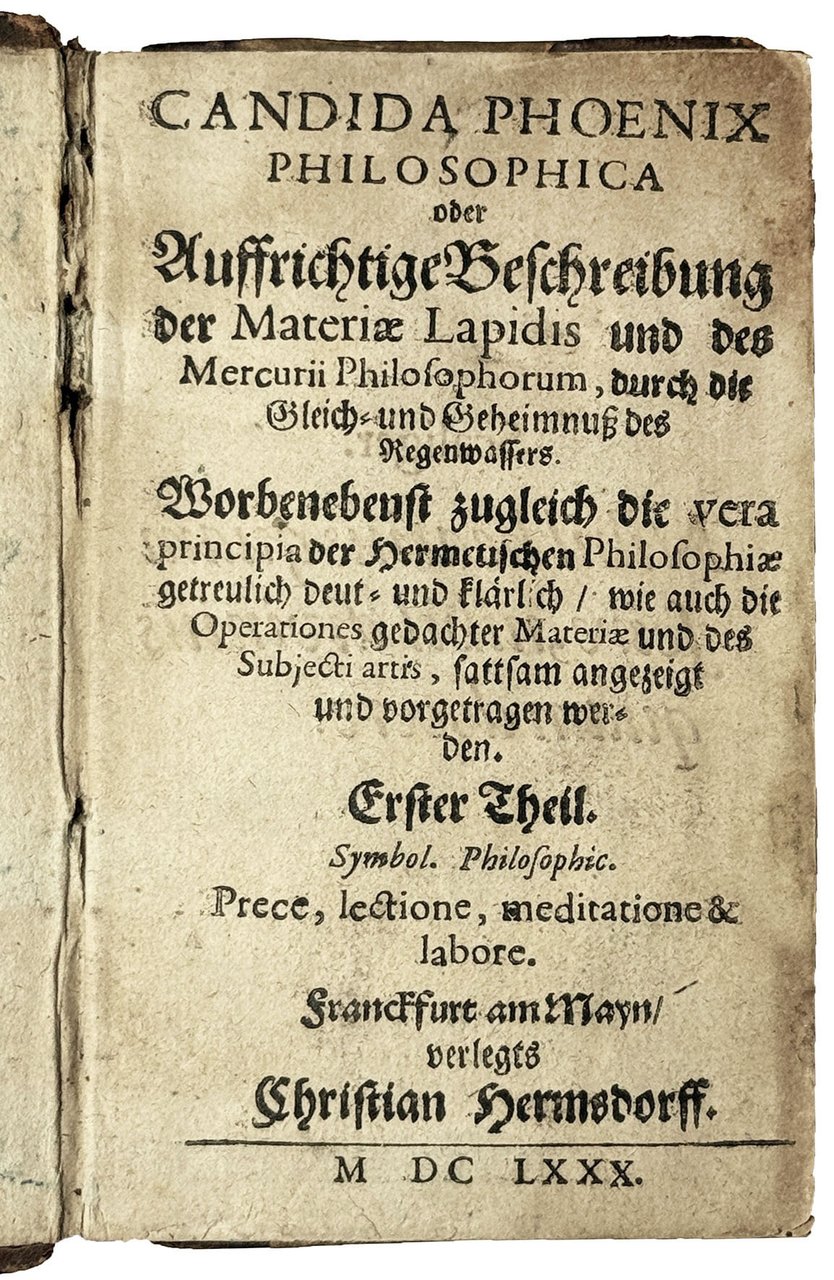 CANDIDA PHOENIX
PHILOSOPHICA
oder
Auffrichtige Beſchreibung
der Materiæ Lapidis und des
Mercurii Philoſophorum, durch die
Gleich- und Geheimnuß des
Regenwaſſers.
Worbenebenſt zugleich die vera
principia der Hermetiſchen Philoſophiæ
getreulich deut- und klärlich / wie auch die
Operationes gedachter Materiæ und des
Subjecti artis, ſattſam angezeigt
und vorgetragen wer-
den.
Erſter Theil.
Symbol. Philoſophic.
Prece, lectione, meditatione &
labore.
Franckfurt am Mayn/
verlegts
Chriſtian Hermsdorff.
M DC LXXX.